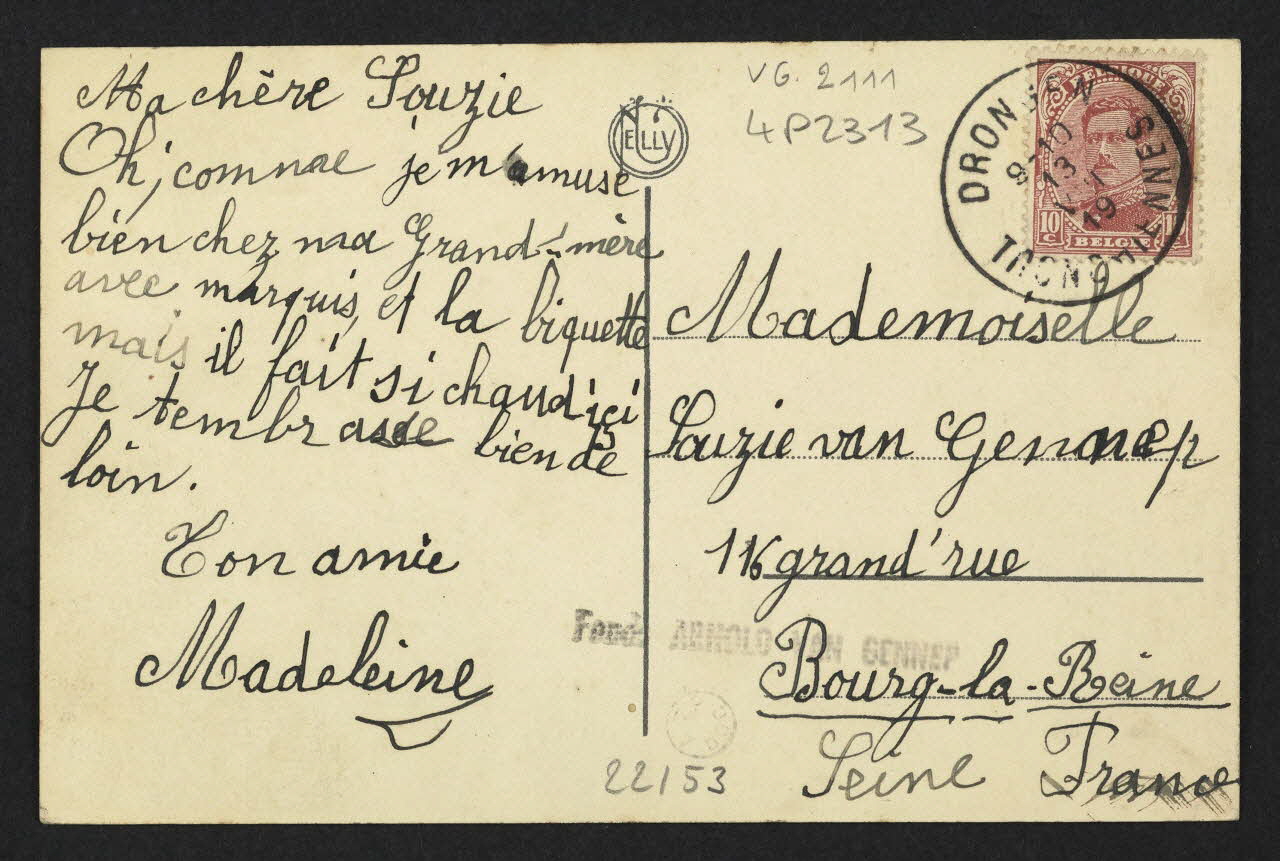 Ma chère Souzie
Oh, comme je m'amuse
bien chez ma Grand'-mère
avec marquis, et la biquette
mais il fait si chaud içi
Je t'embrasse bien de
loin.
Ton amie
Madeleine
NELLY
VG. 2111
4P2313
DRONGEN
8-10
13
19
TRONCHIENNES
BELGIQUE
10 c
BELGIË
Mademoiselle
Souzie van Gennep
116 grand'rue
Bourg-la-Reine
Seine France
Fonds ARNOLD VAN GENNEP
22153